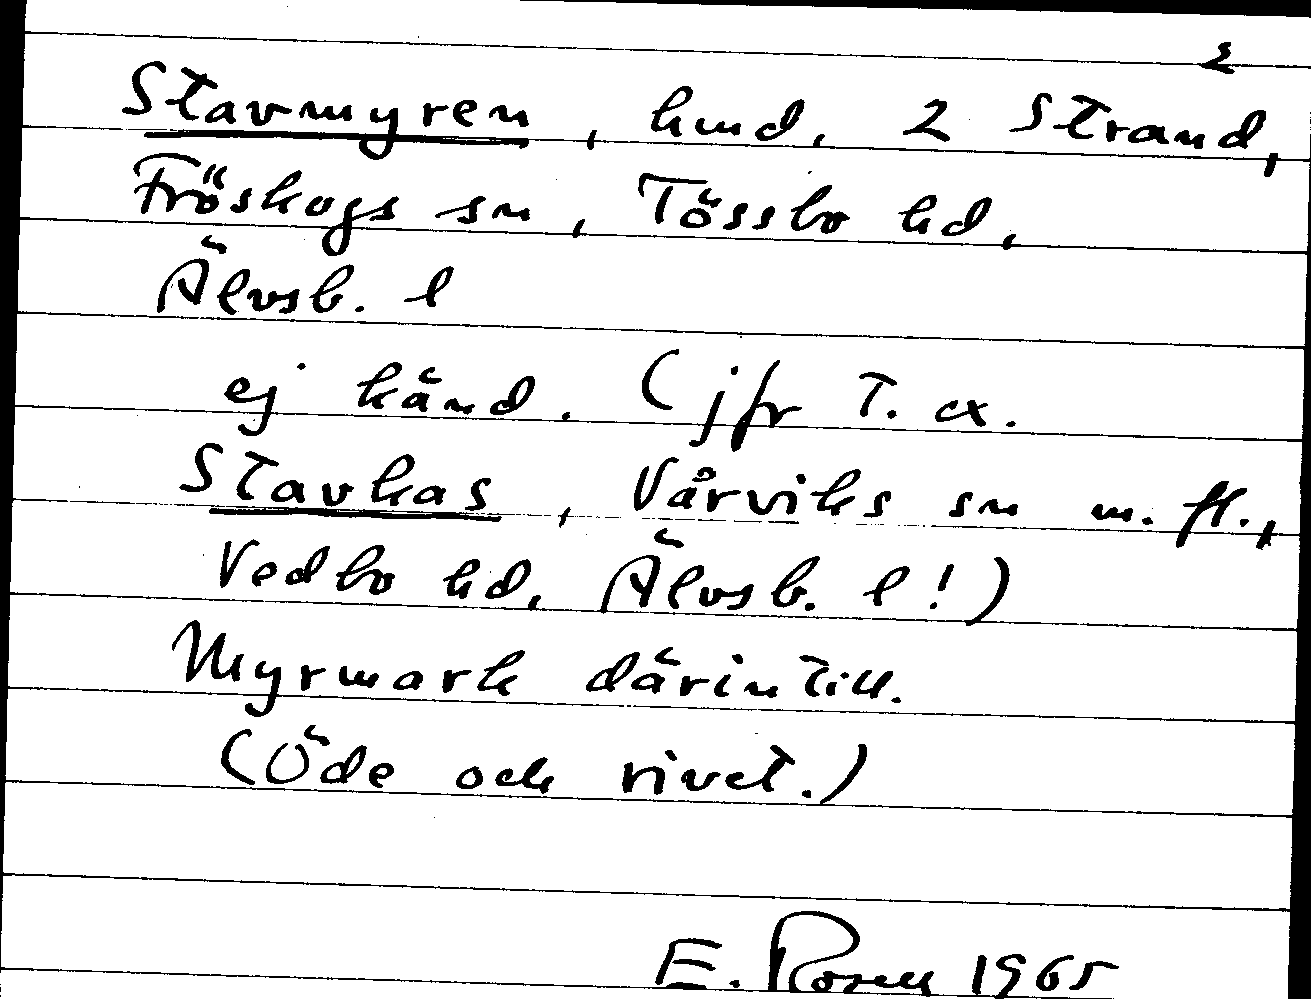 2
Stavmyren, hmd. 2 Strand,
Fröskogs sn, Tössbo hd,
Älvsb. l
ej känd. (jfr T. ex.
Stavkas, Vårviks sn m. fl.,
Vedbo hd, Älvsb. l!)
Myrmark därintill.
(Öde och rivet.)
E. Rosell 1965